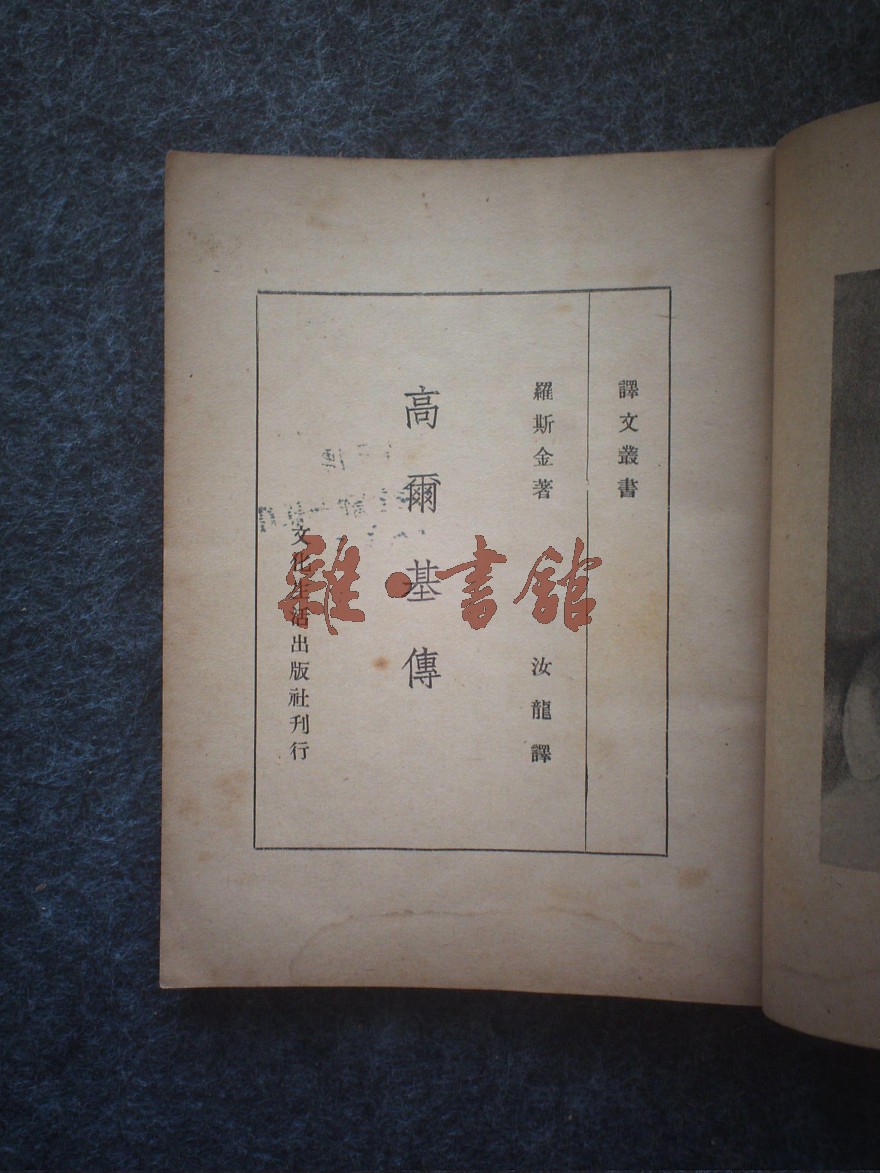 譯文叢書
羅斯金著
汝龍譯
高爾基傳
文化生活出版社刊行
雜·書館